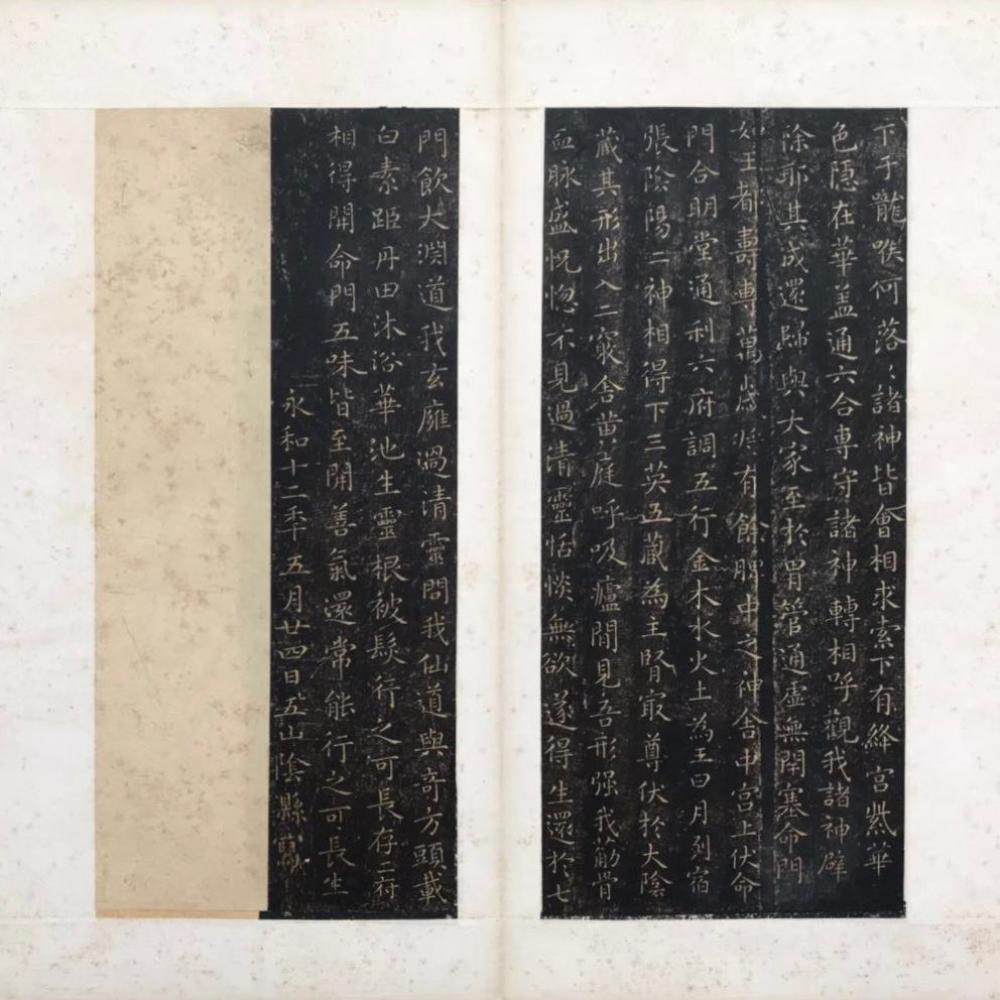 下于龍喉何落〻諸神皆會相求索下有絳宮紫華
色隱在華蓋通六合專守諸神轉相呼觀我諸神辟
除耶其成還歸與大家至於胃管通虛無閉塞命門
如玉者壽專萬歲將有餘脾中之神舍中宮上伏命
門合明堂通利六府調五行金木水火土為王日月列宿
張陰陽二神相得下三英五藏為主腎㝡尊伏於大陰
藏其形出入二竅舍黃庭呼吸廬間見吾形强我筋骨
血脉盛怳惚不見過清靈恬惔無欲遂得生還於七
門飲大淵道我玄廱過清靈問我仙道與奇方頭載
白素距丹田沐浴華池生靈根被髮行之可長存二府
相得開命門五味皆至開善氣還常能行之可長生
永和十二年五月廿四日五山陰縣寫